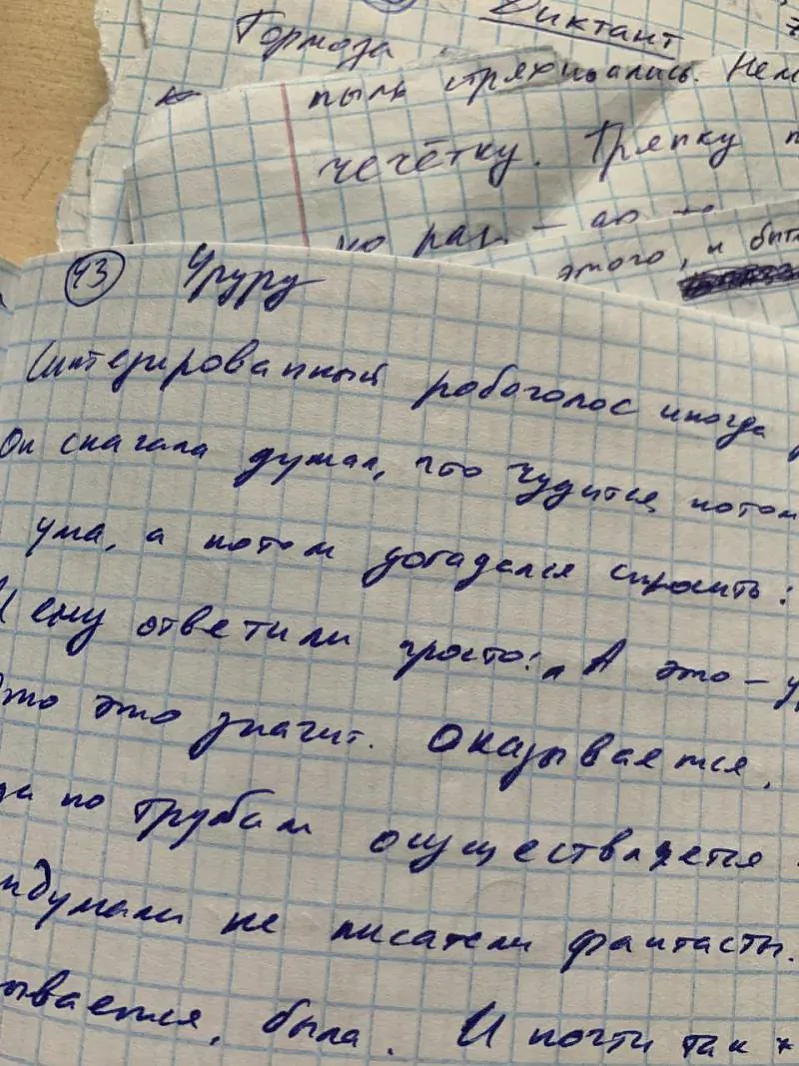 Диктант
Тормоза
пыль стряхивались. Нем
чечётку. Тряпку п
но раз
этого, и быть
43 Уруру
Синтезированный робоголос иногда
Он сначала думал, что чудится, потом
ума, а потом догадался спросить:
И ему ответили просто: „А это – у
Что это значит. Оказывается,
да по трубам осуществляется
идумали не писатели фантасты.
ывается, была. И почти так